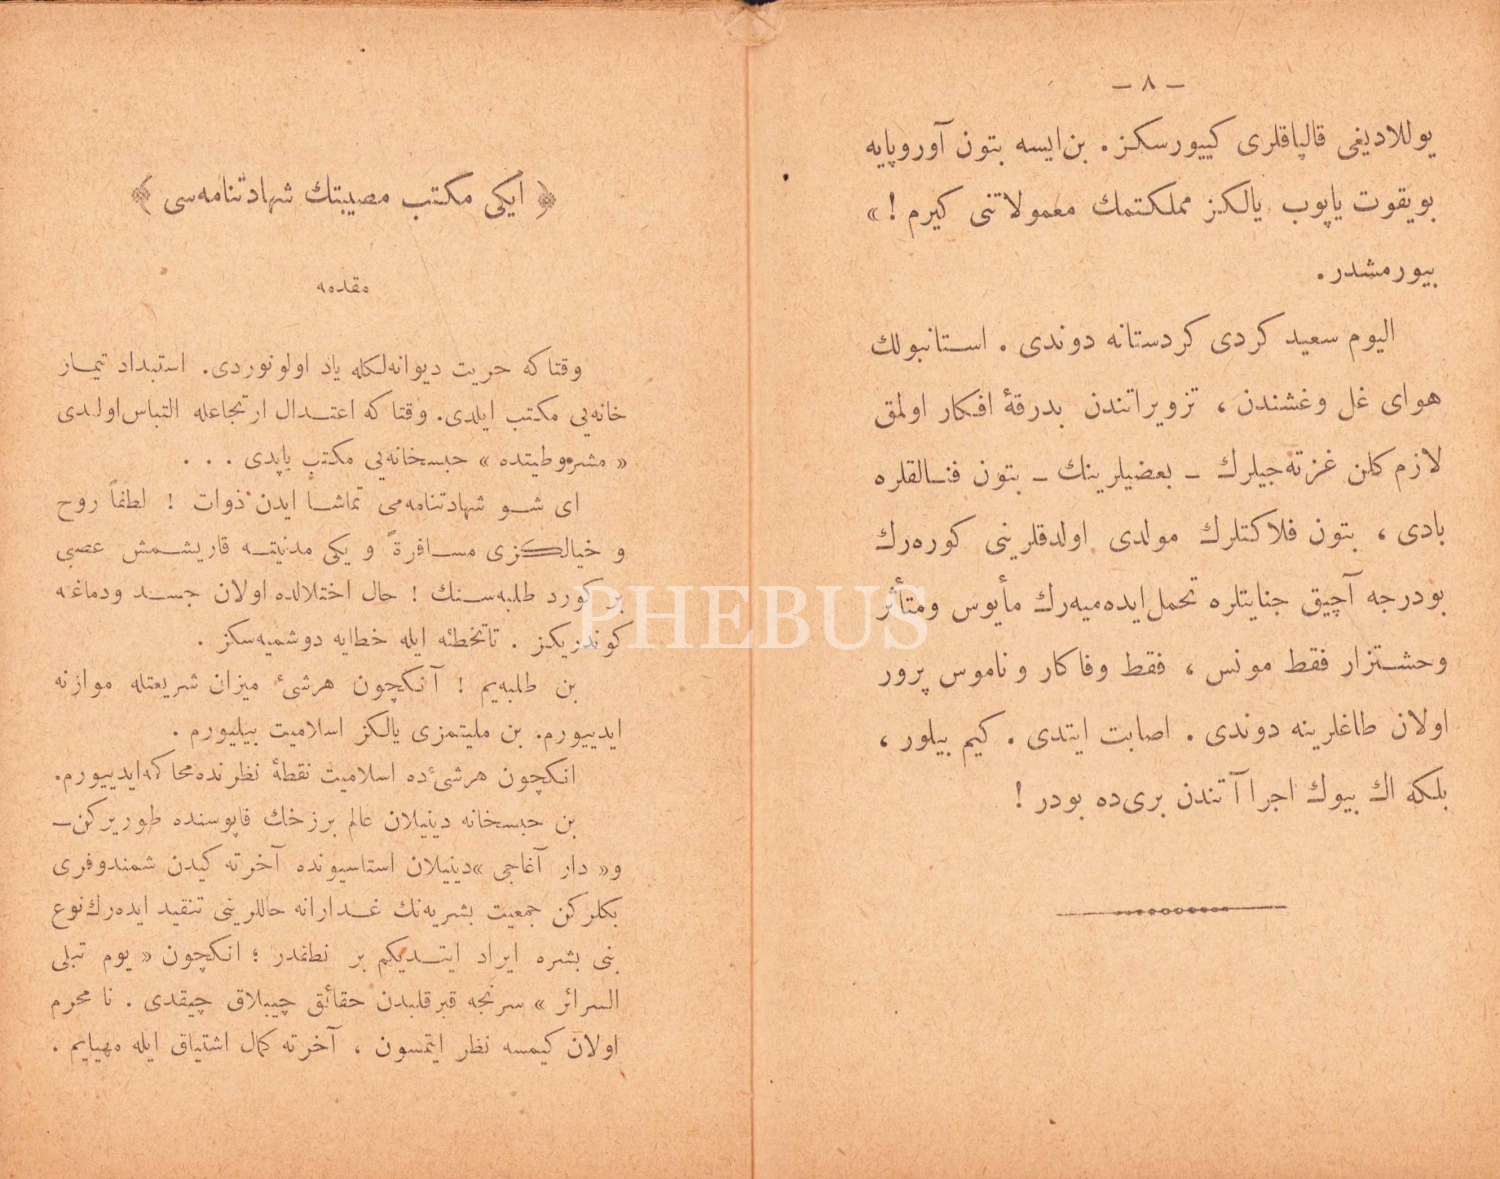 — ٨ —
يوللاديغى قالپاقلرى كييورسكز. بن‌ايسه بتون آوروپايه
بويقوت ياپوب يالكز مملكتمك معمولاتنى كيرم ! »
بيورمشدر.
اليوم سعيد كردى كردستانه دوندى . استانبولك
هواى غل وغشندن ، تزويراتندن بدرقهٔ افكار اولمق
لازم كلن غزته‌جيلرك ـ بعضيلرينك ـ بتون فنالقلره
بادى ، بتون فلاكتلرك مولدى اولدقلرينى كوره‌رك
بودرجه آچيق جنايتلره تحمل‌ايده‌ميه‌رك مأيوس ومتأثر
وحشتزار فقط مونس ، فقط وفاكار و ناموس پرور
اولان طاغلرينه دوندى . اصابت ايتدى . كيم بيلور ،
بلكه اك بيوك اجراآتندن برى‌ده بودر !
﴿ ايكى مكتب مصيبتك شهادتنامه‌سى ﴾
مقدمه
وقتاكه حريت ديوانه‌لكله ياد اولونوردى. استبداد تيمار
خانه‌يى مكتب ايلدى. وقتاكه اعتدال ارتجاعله التباس‌اولدى
« مشروطيتده » حبسخانه‌يى مكتب ياپدى . . .
اى شو شهادتنامه‌مى تماشا ايدن ذوات ! لطفاً روح
و خيالكزى مسافرةً و يكى مدنيته قاريشمش عصبى
بر كورد طلبه‌سنك ! حال اختلالده اولان جسد ودماغه
كوندريكز . تاتخطئه ايله خطايه دوشميه‌سكز .
بن طلبه‌يم ! آنكچون هرشئ ميزان شريعتله موازنه
ايدييورم. بن مليتمزى يالكز اسلاميت بيليورم .
انكچون هرشئ‌ده اسلاميت نقطهٔ نظرنده‌محاكمه‌ايدييورم.
بن حبسخانه دينيلان عالم برزخك قاپوسنده طوريركن ـ
و« دار آغاجى »دينيلان استاسيونده آخرته كيدن شمندوفرى
بكلركن جمعيت بشريه‌نك غدارانه حاللرينى تنقيد ايده‌رك‌نوع
بنى بشره ايراد ايتديكم بر نطقدر ؛ انكچون « يوم تبلى
السرائر » سرنجه قبرقلبدن حقائق چيپلاق چيقدى . نا محرم
اولان كيمسه نظر ايتمسون ، آخرته كمال اشتياق ايله مهيايم .
PHEBUS